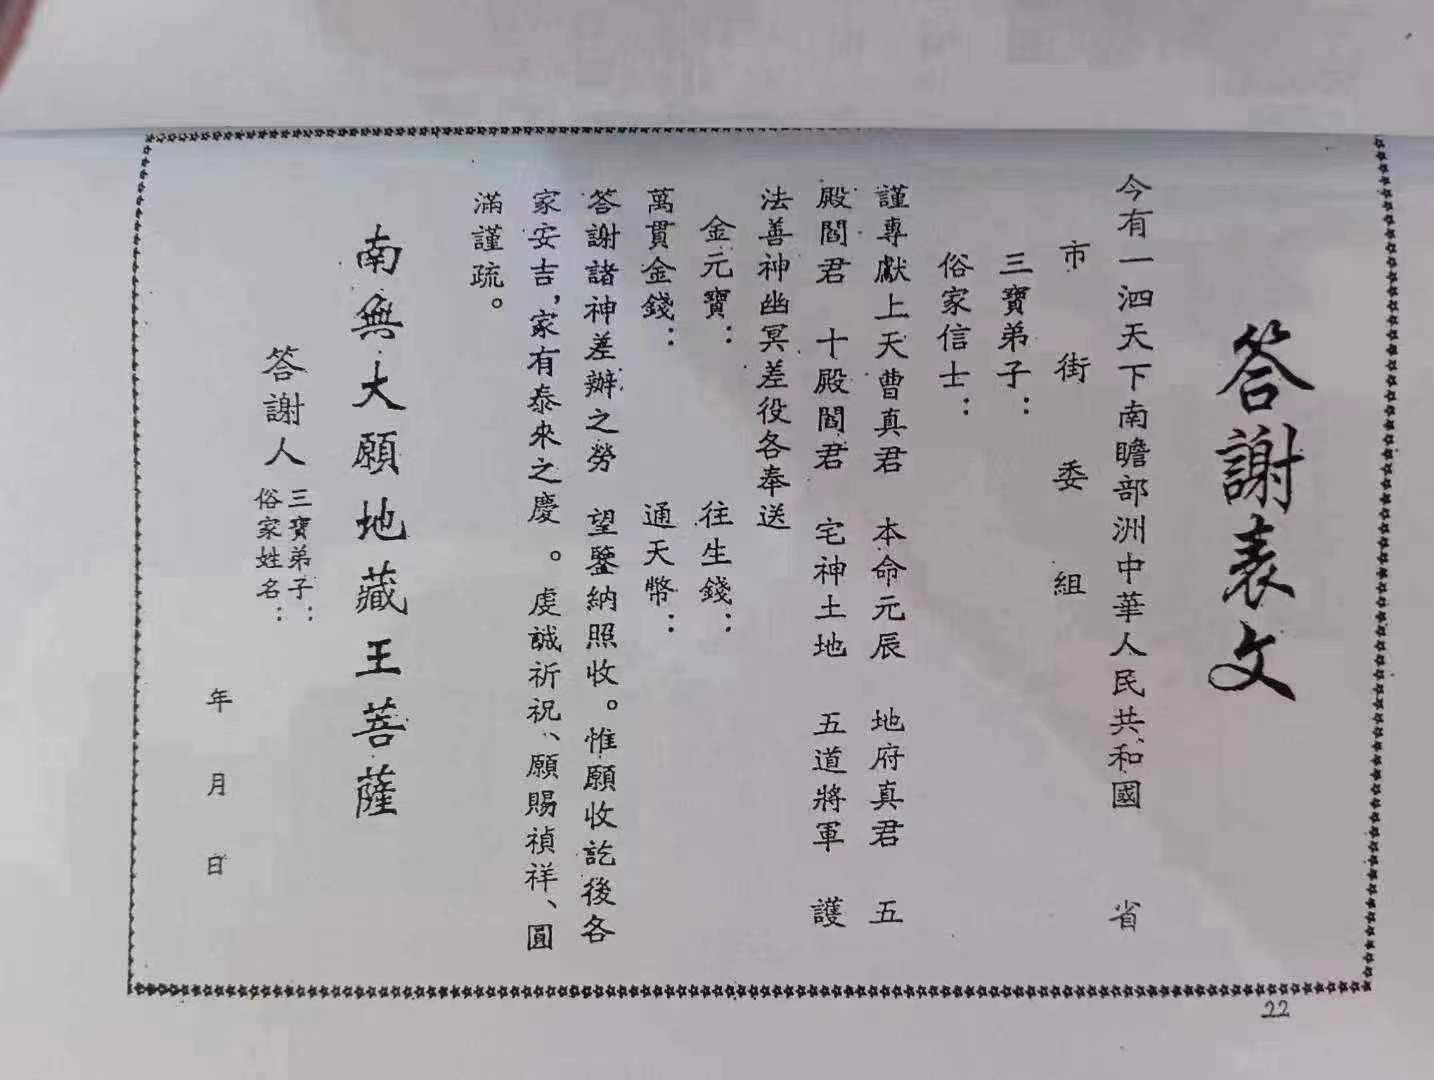 答謝表文
今有一泗天下南瞻部洲中華人民共和國 省
市 街 委 組
三寶弟子：
俗家信士：
謹專獻上天曹真君 本命元辰 地府真君 五
殿閻君 十殿閻君 宅神土地 五道將軍 護
法善神幽冥差役各奉送
金元寶： 往生錢：
萬貫金錢： 通天幣：
答謝諸神差辦之勞 望鑒納照收。惟願收訖後各
家安吉，家有泰來之慶。虔誠祈祝、願賜禎祥、圓
滿謹疏。
南無大願地藏王菩薩
答謝人 三寶弟子：
俗家姓名：
年 月 日
22